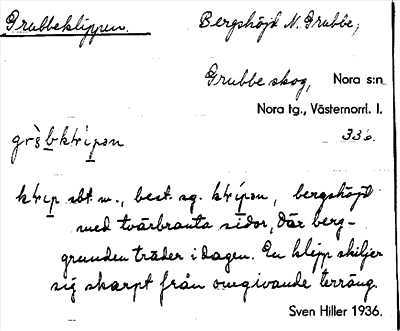 Grubbeklippen. Bergshöjd N. Grubbe;
Grubbe skog, Nora s:n
Nora tg., Västernorrl. l.
336.
klip sbt. m., best. sg. , bergshöjd
med tvärbranta sidor, där berg-
grunden träder i dagen. En klipp skiljer
sig skarpt från omgivande terräng.
Sven Hiller 1936.